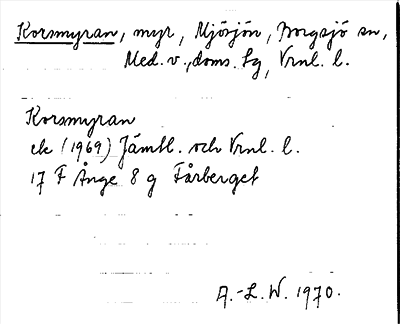 Korsmyran, myr, Mjösjön, Borgsjö sn,
Med. v., doms. lg, Vrnl. l.
Korsmyran
ek (1969) Jämtl. och Vrnl. l.
17 F Ånge 8 g Fårberget
A.-L. W. 1970.